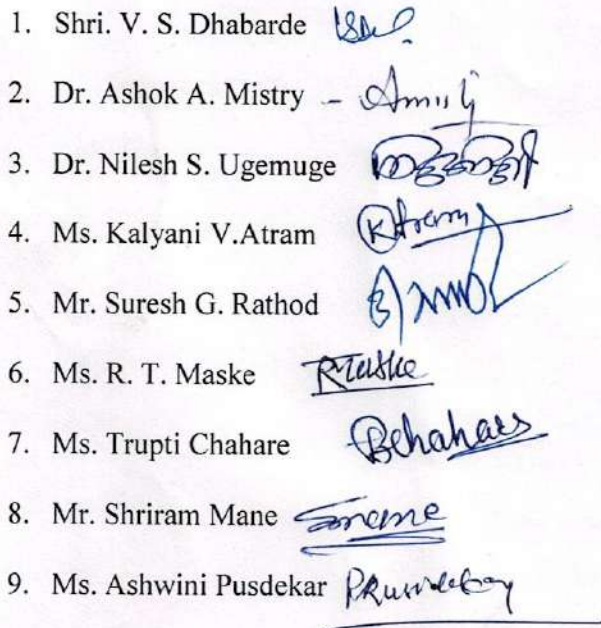 1. Shri. V. S. Dhabarde
2. Dr. Ashok A. Mistry -
3. Dr. Nilesh S. Ugemuge
4. Ms. Kalyani V.Atram Katram
5. Mr. Suresh G. Rathod
6. Ms. R. T. Maske RTMaske
7. Ms. Trupti Chahare
8. Mr. Shriram Mane
9. Ms. Ashwini Pusdekar